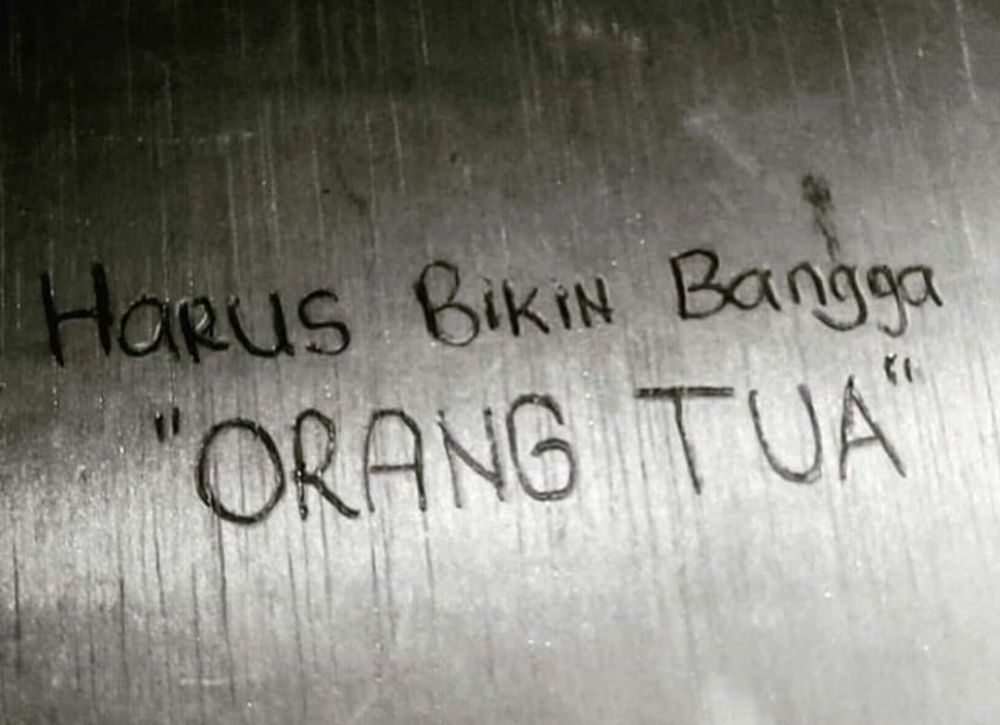 HaRUS BiKiN Bangga
"ORANG TUA"